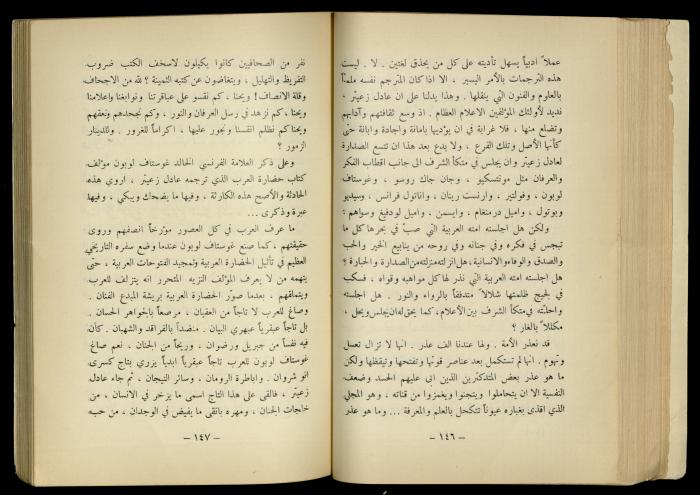 عملاً ادبياً يسهل تأديته على كل من يحذق لغتين . لا . ليست
هذه الترجمات بالأمر اليسير ، الا اذا كان المترجم نفسه ملماً
بالعلوم والفنون التي ينقلها . وهذا يدلنا على ان عادل زعيتر ،
نديد لأولئك المؤلفين الاعلام العظام . اذ وسع ثقافتهم وآدابهم
وتضلع منها ، فلا غرابة في ان يؤديها بامانة واجادة وابانة حتى
كأنها الأصل وتلك الفرع ، ولا بدع بعد هذا ان تتسع الصدارة
لعادل زعيتر وان يجلس في متكأ الشرف الى جانب اقطاب الفكر
والعرفان مثل مونتسكيو ، وجان جاك روسو ، وغوستاف
لوبون ، وفولتير ، وارنست رينان ، واناتول فرانس ، وسيديو
وبوتول ، واميل درمنغام ، وايسمن ، واميل لودفيغ وسواهم :
ولكن هل اجلسته امته العربية التي صب في بحرها كل ما
تبجس في فكره وفي جنانه وفي روحه من ينابيع الخير والحب
والصدق والوفاء والانسانية، هل انزلته منزلته من الصدارة والحبارة ؟
هل اجلسته امته العربية التي نذر لها كل مواهبه وقواه ، فسكب
في خليج ظلمتها شلالاً متدفقاً بالرواء والنور . هل اجلسته
واحلته في متكأ الشرف بين الأعلام، كما يحق له ان يجلس ويحل ،
مكللاً بالغار ؟
قد نعذر الأمة . ولها عندنا الف عذر . انها لا تزال تعسل
وتهوم . انها لم تستكمل بعد عناصر قوتها وتفتحها وتيقظها ولكن
ما هو عذر بعض المتدكترين الذين ابى عليهم الحسد وضعف
النفسية الا ان يتحاملوا ويتجنوا ويغمزوا من قناته ، وهو المجلي
الذي اقذى بغباره عيوناً تتكحل بالعلم والمعرفة ... وما هو عذر
— ١٤٦ —
نفر من الصحافيين كانوا يكيلون لاسخف الكتب ضروب
التقريظ والتهليل ، ويتغاضون عن كتبه الثمينة ؟ لله من الاجحاف
وقلة الانصاف ! ويحنا ، كم نقسو على عباقرتنا ونوابغنا واعلامنا
ويحنا ، كم نزهد في رسل العرفان والنور ، وكم نجحدهم ونعقهم
ويحنا كم نظلم انفسنا ونجور عليها ، اكراماً للغرور . وللدينار
الزمور ؟
وعلى ذكر العلامة الفرنسي الخالد غوستاف لوبون مؤلف
كتاب حضارة العرب الذي ترجمه عادل زعيتر ، اروي هذه
الحادثة والأصح هذه الكارثة ، وفيها ما يضحك ويبكي ، وفيها
عبرة وذكرى ...
ما عرف العرب في كل العصور مؤرخاً انصفهم وروى
حقيقتهم ، كما صنع غوستاف لوبون عندما وضع سفره التاريخي
العظيم في تأثيل الحضارة العربية وتمجيد الفتوحات العربية ، حتى
يتهمه من لا يعرف المؤلف النزيه المتحرر انه يتزلف للعرب
ويتملقهم ، بعدما صوّر الحضارة العربية بريشة المبدع الفنان .
وصاغ للعرب لا تاجاً من العقيان ، مرصعاً بالجواهر الحسان
بل تاجاً عبقرياً عبهري البيان . منضداً بالفراقد والشهبان . كأن
فيه نفساً من جبريل ورضوان ، وريحاً من الجنان ، نعم صاغ
غوستاف لوبون للعرب تاجاً عبقرياً ابدياً يزري بتاج كسرى
انو شروان ، واباطرة الرومان ، وسائر التيجان ، ثم جاء عادل
زعيتر ، فالقى على هذا التاج اسمى ما يزخر في الانسان ، من
خلجات الجنان ، ومهره بانقى ما يفيض في الوجدان ، من حب
— ١٤٧ —